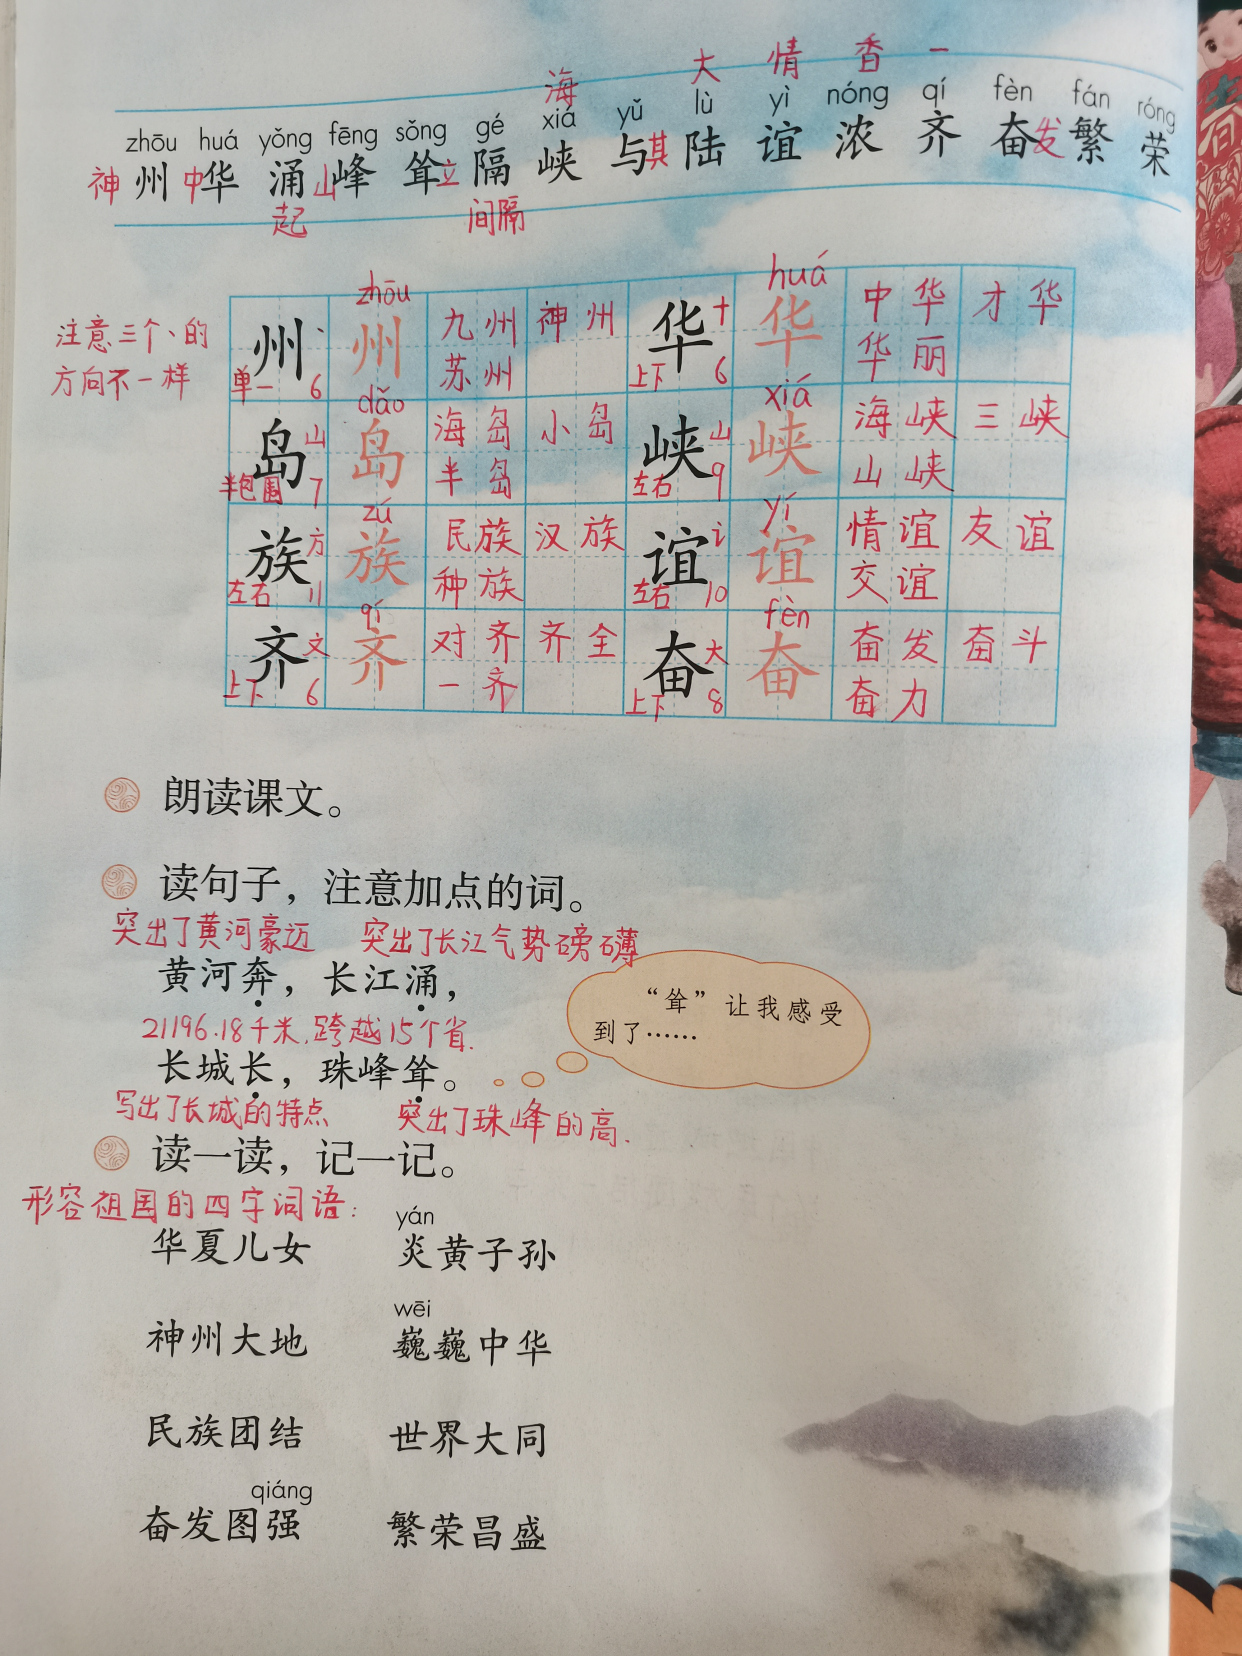 海 大 情 香 一
zhōu huá yǒng fēng sǒng gé xiá yǔ lù yì nóng qí fèn fán róng
神州 中华 涌 山峰 耸立 隔 峡 与其 陆 谊 浓 齐 奋发 繁 荣
起 间隔
zhōu huá
注意三个、的
方向不一样
州 、 单一 6 州 九州 神州 苏州
华 十 上下 6 华 中华 才华 华丽
dǎo xiá
岛 山 半包围 7 岛 海岛 小岛 半岛
峡 山 左右 9 峡 海峡 三峡 山峡
zú yí
族 方 左右 11 族 民族 汉族 种族
谊 讠 左右 10 谊 情谊 友谊 交谊
qí fèn
齐 文 上下 6 齐 对齐 齐全 一齐
奋 大 上下 8 奋 奋发 奋斗 奋力
朗读课文。
读句子，注意加点的词。
突出了黄河豪迈 突出了长江气势磅礴
黄河奔，长江涌，
“耸”让我感受
到了……
21196.18千米，跨越15个省.
长城长，珠峰耸。
写出了长城的特点 突出了珠峰的高.
读一读，记一记。
形容祖国的四字词语：
yán
华夏儿女 炎黄子孙
wēi
神州大地 巍巍中华
民族团结 世界大同
qiáng
奋发图强 繁荣昌盛
春